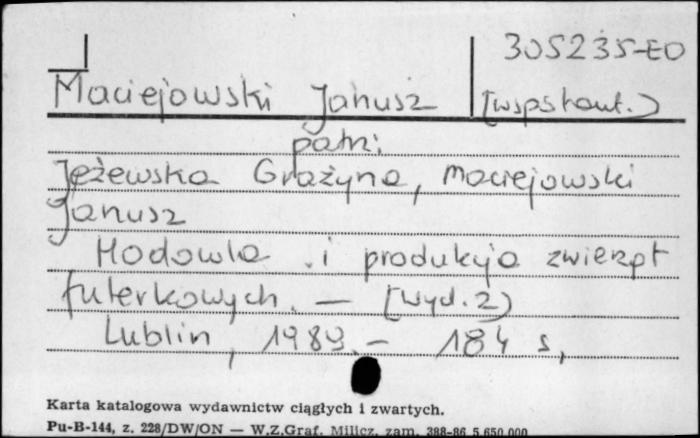 305235-EO
Maciejowski Janusz (wspśaut.)
patrz:
Jeżewska Grażyna, Maciejowski
Janusz
Hodowla i produkcja zwierząt
futerkowych. — (wyd. 2)
Lublin, 1989. — 184 s.
Karta katalogowa wydawnictw ciągłych i zwartych.
Pu-B-144, z. 228/DW/ON — W.Z.Graf. Milicz, zam. 388-86 5.650.000